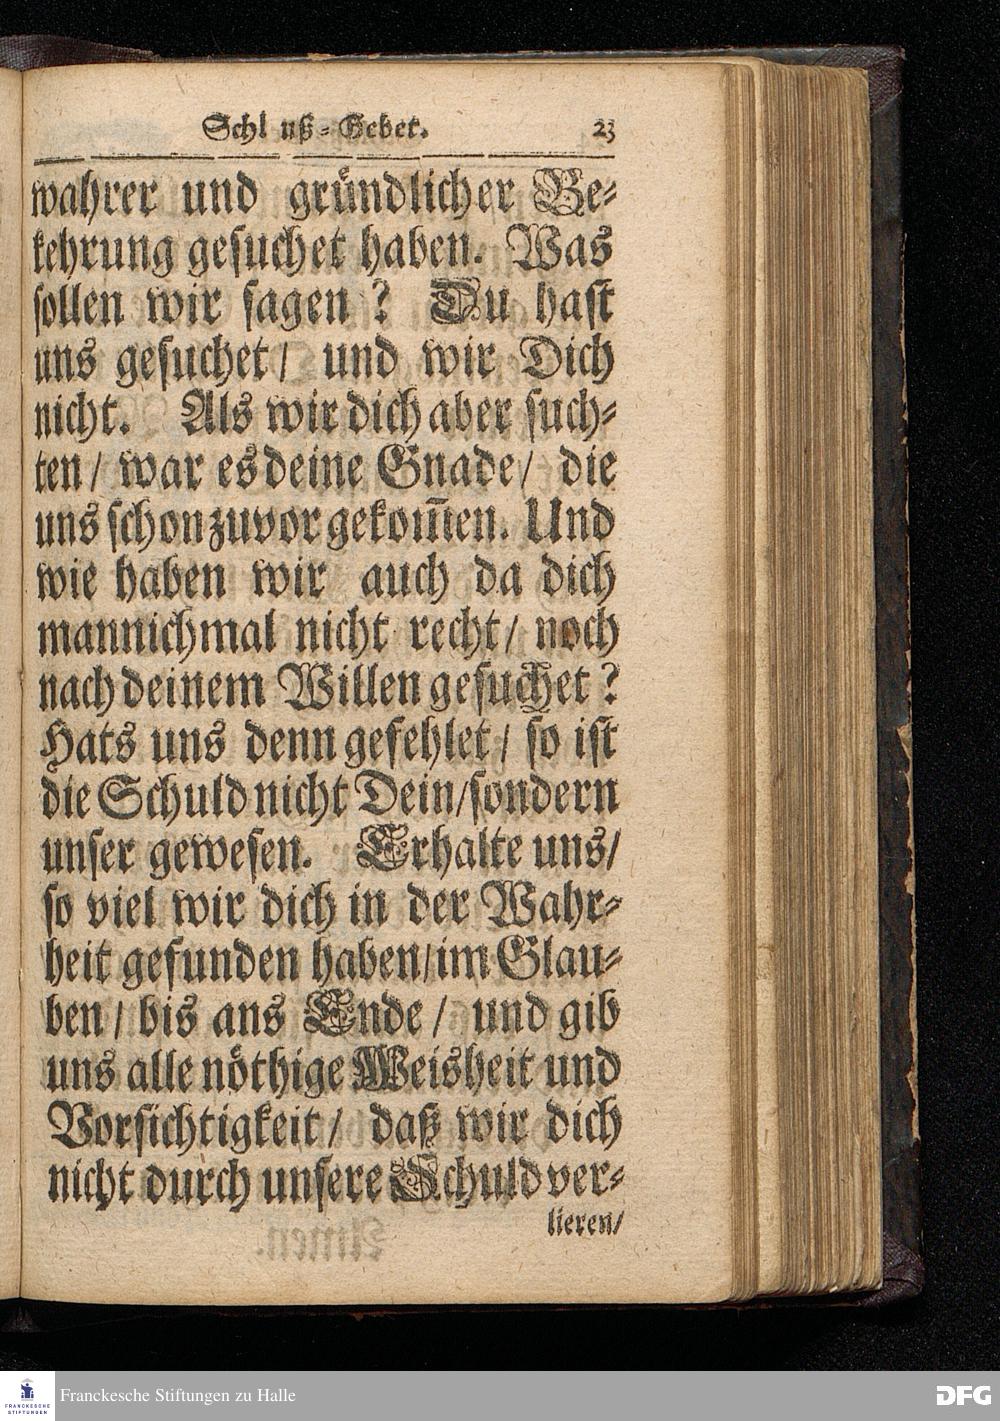 Schl uß-Gebet. 23
wahrer und gründlicher Be-
kehrung gesuchet haben. Was
sollen wir sagen ? Du hast
uns gesuchet / und wir Dich
nicht. Als wir dich aber such-
ten / war es deine Gnade / die
uns schon zuvor gekom̃en. Und
wie haben wir auch da dich
mannichmal nicht recht / noch
nach deinem Willen gesuchet ?
Hats uns denn gefehlet / so ist
die Schuld nicht Dein / sondern
unser gewesen. Erhalte uns /
so viel wir dich in der Wahr-
heit gefunden haben / im Glau-
ben / bis ans Ende / und gib
uns alle nöthige Weisheit und
Vorsichtigkeit / daß wir dich
nicht durch unsere Schuld ver-
lieren /
Franckesche Stiftungen zu Halle
FRANCKESCHE
STIFTUNGEN
DFG